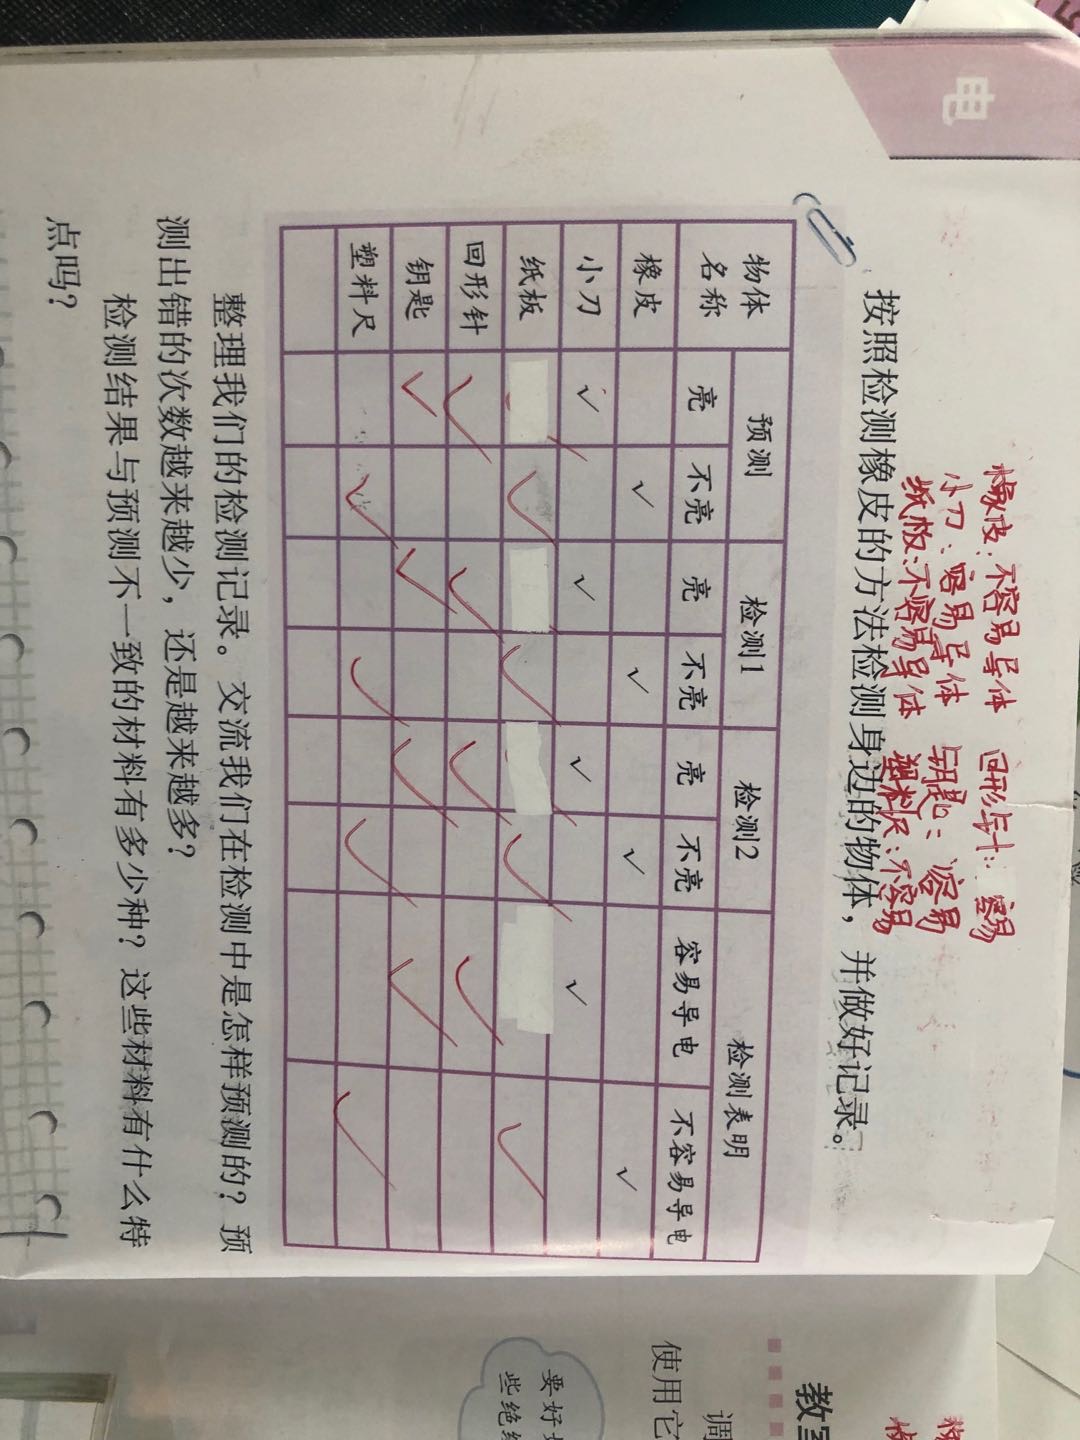 电
橡皮：不容易导体 回形针：容易
小刀：容易导体 钥匙：容易
纸板：不容易导体 塑料尺：不容易
按照检测橡皮的方法检测身边的物体，并做好记录。
物体名称 预测 检测1 检测2 检测表明
亮 不亮 亮 不亮 亮 不亮 容易导电 不容易导电
橡皮 ✓ ✓ ✓ ✓
小刀 ✓ ✓ ✓ ✓
纸板 ✓ ✓ ✓ ✓
回形针 ✓ ✓ ✓ ✓
钥匙 ✓ ✓ ✓ ✓
塑料尺 ✓ ✓ ✓ ✓
整理我们的检测记录。交流我们在检测中是怎样预测的？预
测出错的次数越来越少，还是越来越多？
检测结果与预测不一致的材料有多少种？这些材料有什么特
点吗？
教室
调
使用它
要好
些绝